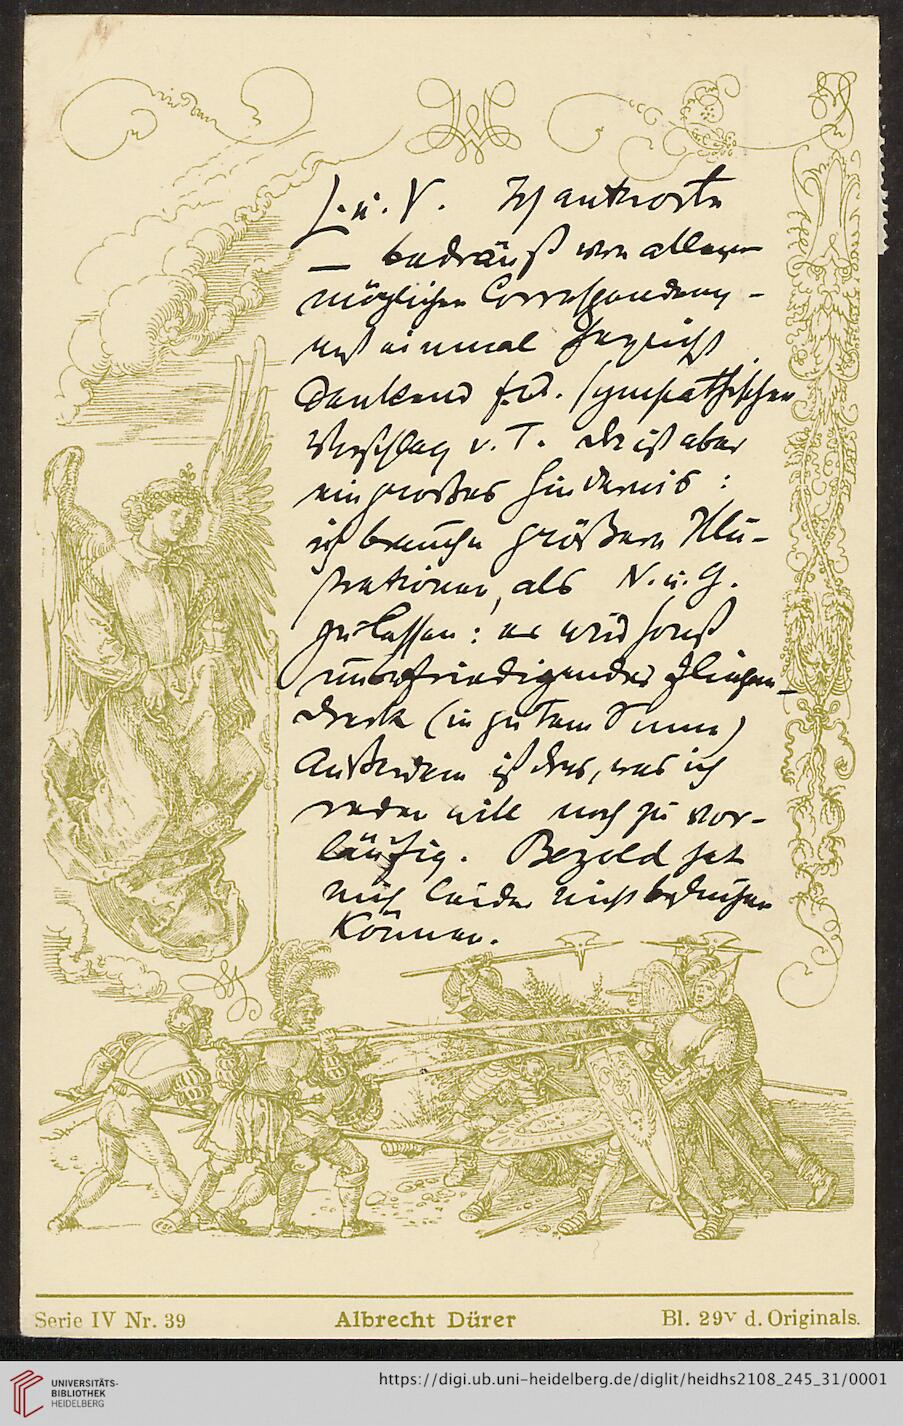 L. u. V. Ich antworte
— bedrängt von allen
möglichen Correspondenzen –
erst einmal
dankend f. d. sympathischen
Vorschlag v. T. Da ist aber
ein großes Hindernis :
ich brauche größere Illu-
strationen, als N. u. G.
zulassen : es wird sonst
unbefriedigender Fliegen-
dreck (in gutem Sinne)
Außerdem ist das, was ich
reden will noch zu vor-
läufig. Bezold hat
mich leider nicht besuchen
können.
Serie IV Nr. 39
Albrecht Dürer
Bl. 29v d. Originals.
UNIVERSITÄTS-
BIBLIOTHEK
HEIDELBERG
https://digi.ub.uni-heidelberg.de/diglit/heidhs2108_245_31/0001